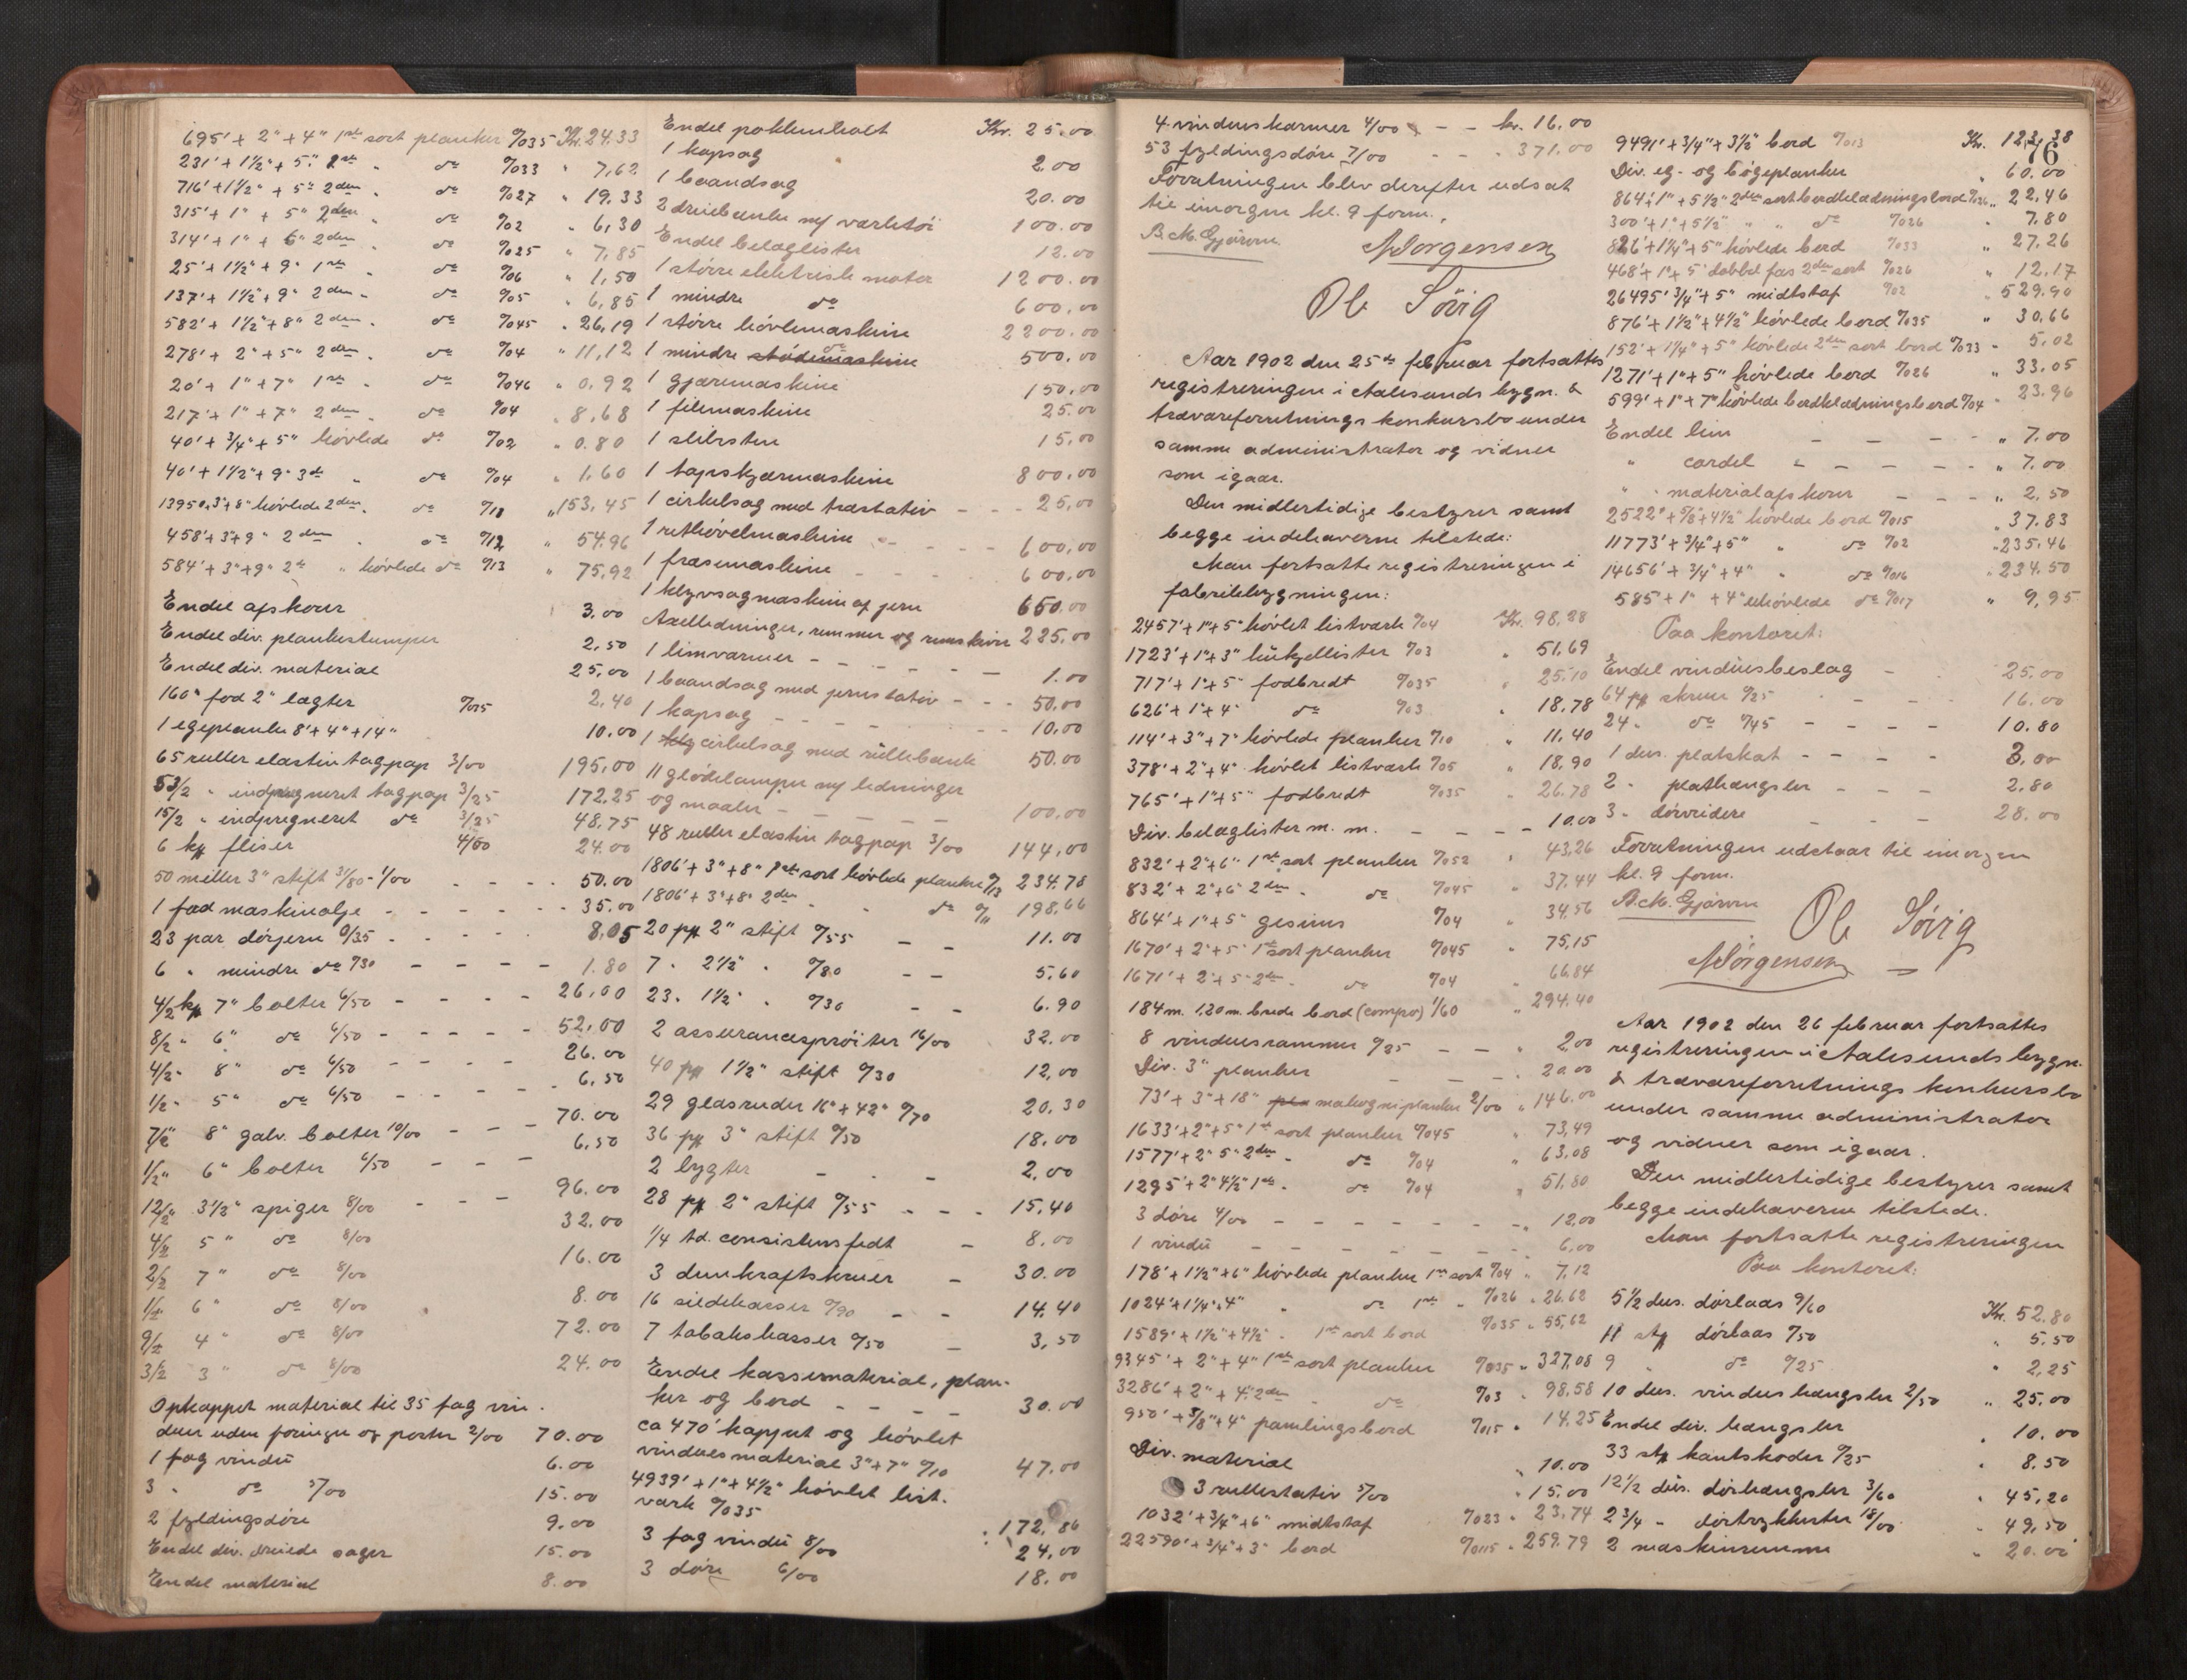 695' + 2" + 4" 1ste sort planker %035 Kr. 24.33
231' + 1½" + 5" 2den " do %033 " 7,62
716' + 1½" + 5" 2den " do %027 " 19,33
315' + 1" + 5" 2den " do %02 " 6,30
314' + 1" + 6" 2den " do %025 " 7,85
25' + 1½" + 9" 1ste " do %06 " 1,50
137' + 1½" + 9" 2den " do %05 " 6,85
582' + 1½" + 8" 2den " do %045 " 26,19
278' + 2" + 5" 2den " do %04 " 11,12
20' + 1" + 7" 1ste " do %046 " 0,92
217' + 1" + 7" 2den " do %04 " 8,68
40' + ¾" + 5" hövlede do %02 " 0.80
40' + 1½" + 9" 3de " do %04 " 1,60
1395' + 3" + 8" hövlede 2den " do %11 " 153,45
458' + 3" + 9" 2den " do %12 " 54.96
584' + 3" + 9" 2de " hövlede do %13 " 75,92
Endel afskour 3.00
Endel div. plankestumper 2,50
Endel div. material 25,00
160" fod 2" lægter %015 2,40
1 egeplanke 8' + 4" + 14" 10.00
65 ruller elastin tagpap 3/00 195,00
53/2 " indprægneret tagpap 3/25 172,25
15/2 " indprægneret do 3/25 48,75
6 kp fliser 4/00 24.00
50 meller 3" stift 1/00 - - - 50.00
1 fad maskinolje - - - - 35.00
23 par dörjern 0/35 - - - - 8,05
6 " mindre do %30 - - - - 1.80
4/2 kp 7" bolter 6/50 - - - - 26,00
8/2 " 6" do 6/50 - - - - 52,00
4/2 " 8" do 6/50 - - - - 26.00
1/2 " 5" do 6/50 - - - - 6,50
7/2 " 8" galv. bolter 10/00 - - - 70.00
1/2 " 6" bolter 6/50 - - - 6,50
12/2 " 3½" spiger 8/00 - - - 96.00
4/2 5" do 8/00 32.00
2/2 7" do 8/00 16.00
1/2 6" do 8/00 8.00
9/2 4" do 8/00 72.00
3/2 3" do 8/00 24.00
Opkappet material til 35 fag vin-
duer uden foringer og poster 2/00 70.00
1 fag vindü 6.00
3 " do 5/00 15.00
2 fyldingsdöre 9.00
Endel div. dreiede sager 15.00
Endel material 8.00
Endel pokkenholt Kr. 25.00
1 kapsag 2.00
1 baandsag 20.00
2 dreiebænke m/ værktöi 100.00
Endel belæglister 12.00
1 större elektrisk motor 1200.00
1 mindre do 600.00
1 större hövlemaskine 2200.00
1 mindre stödemaskine do 500.00
1 gjæremaskine 150.00
1 filemaskine 25.00
1 slibesten 15.00
1 tapskjærmaskine 800.00
1 cirkelsag med træstativ - - - 25,00
1 rethövelmaskine - - - - 600,00
1 fræsemaskine - - - - 600.00
1 klyvsagmaskine af jern 650.00
Axelledninger, remmer og remskiver 225,00
1 limvarmer - - - - - 1.00
1 baandsag med jernstativ - - - 50.00
1 kapsag - - - - - - 10,00
1 kly cirkelsag med rüllebænk 50.00
11 glödelamper m/ ledninger
og maaler - - - - - 100.00
48 ruller elastin tagpap 3/00 144,00
1806' + 3" + 8" 1ste sort hövlede planker %13 234.78
1806' + 3" + 8" 2den " " do %11 198,66
20 pk 2" stift %55 - - 11.00
7 " 2½" " %80 - - 5,60
23 " 1½" " %30 - - 6.90
2 assurancespröiter 16/00 32.00
40 pk 1½" stift %30 12,00
29 glasruder 16" + 42" %70 20.30
36 pk 3" stift %50 18.00
2 lygter - - - 2,00
28 pk 2" stift %55 - - - 15,40
¼ td. consistensfedt - 8.00
3 dunkraftskruer - 30.00
16 sildekasser %90 - - 14.40
7 tobakskasser %50 - 3,50
Endel kassematerial, plan-
ker og bord - - - - 30.00
ca 470' kappet og hövlet
vinduesmaterial 3" + 7" %10 47.00
4939' + 1" + 4½" hövlet list-
værk %035 172,86
3 fag vindü 8/00 24,00
3 döre 6/00 18.00
4 vindueskarmer 4/00 - - kr. 16.00
53 fyldingsdöre 7/00 - - " 371.00
Forretningen blev derefter udsat
til imorgen kl. 9 form.
B. M. Gjörven NJörgensen
Ole Sövig
Aar 1902 den 25de februar fortsattes
registreringen i Aalesunds bygn. &
trævareforretnings konkursbo under
samme administrator og vidner
som igaar.
Den midlertidige bestyrer samt
begge indehaverne tilstede:
Man fortsatte registreringen i
fabrikbygningen:
2457' + 1" + 5" hövlet listværk %04 Kr. 98,28
1723' + 1" + 3" hülkjellister %03 " 51,69
717' + 1" + 5" fodbredt %035 " 25,10
626' + 1" + 4" do %03 " 18.78
114' + 3" + 7" hövlede planker %10 " 11,40
378' + 2" + 4" hövlet listværk %05 " 18,90
765' + 1" + 5" fodbredt %035 " 26.78
Div. belæglister m. m. - - - - 10.00
832' + 2" + 6" 1ste sort planker %052 " 43,26
832' + 2" + 6" 2den " do %045 " 37,44
864' + 1" + 5" gesims %04 " 34,56
1670' + 2" + 5" 1ste sort planker %045 " 75,15
1671' + 2" + 5" 2de " do %04 66,84
184 m. 1,20 m. brede bord (compo) 1/60 " 294.40
8 vinduesrammer %25 - - " 2,00
Div. 3" planker - - - " 20.00
73' + 3" + 18" pla mahogniplanker 2/00 " 146.00
1633' + 2" + 5" 1ste sort planker %045 " 73,49
1577' + 2" 5" 2den " do %04 " 63,08
1295' + 2" 4½" 1ste " do %04 " 51,80
3 döre 4/00 - - - - - - - " 12,00
1 vindü - - - - - - - 6,00
178' + 1½" + 6" hövlede planker 1ste sort %04 " 7,12
1024' + 1¼" + 4" " do 1ste " %026 " 26.62
1589' + 1½" + 4½" " 1ste sort bord %035 " 55,62
9345' + 2" + 4" 1ste sort planker %035 " 327,08
3286' + 2" + 4" 2den " do %03 " 98,58
950' + 5/8" + 4" pamlingsbord %015 " 14.25
Div. material " 10.00
3 rullestativ 5/00 " 15,00
1032' + ¾" + 6" midtstaf %023 " 23,74
22590' + ¾" + 3" bord %0115 " 259.79
76
9491' + ¾" + 3½" bord %013 Kr. 123,38
Div. eg- og bögeplanker " 60.00
864' + 1" + 5½" 2den sort bordklædningsbord %026 " 22,46
300' + 1" + 5½" " " do %026 " 7.80
826' + 1¼" + 5" hövlede bord %033 " 27,26
468' + 1" + 5" dobbel fas 2den sort %026 " 12,17
26495' ¾" + 5" midtstaf %02 " 529.90
876' + 1½" + 4½" hövlede bord %035 " 30,66
152' + 1¼" + 5" hövlede 2den sort bord %033 " 5,02
1271' + 1" + 5" hövlede bord %026 " 33,05
599' + 1" + 7" hövlede bordklædningsbord %04 " 23.96
Endel lim - - - - " 7.00
" cordel - - - - - " 7.00
" materialafskour - - - " 2,50
2522' + 5/8" + 4½" hövlede bord %015 " 37.83
11773' + ¾" + 5" " do %02 " 235,46
14656' + ¾" + 4" " do %016 " 234.50
585' + 1" + 4" uhövlede do %017 " 9,95
Paa kontoret:
Endel vindüesbeslag - 25.00
64 pk skruer %25 - - - 16.00
24 " do %45 - - - - 10.80
1 dus. platskat - - - - 3.00
2 " plathængsler - - - 2,80
3 " dörvridere - - - 28.00
Forretningen udstaar til imorgen
kl. 9 form.
B. M. Gjörven Ole Sövig
NJörgensen
Aar 1902 den 26 februar fortsattes
registreringen i Aalesunds bygn.
& trævareforretnings konkursbo
under samme administrator
og vidner som igaar.
Den midlertidige bestyrer samt
begge indehaverne tilstede.
Man fortsatte registreringen
Paa kontoret:
5½ dus. dörlaas 9/60 Kr. 52.80
11 stk dörlaas %50 " 5.50
9 " do %25 " 2,25
10 dus. vindushængsler 2/50 " 25.00
Endel div. hængsler " 10.00
33 stk kantskoder %25 " 8.50
12½ dus. dörhængsler 3/60 " 45,20
2¾ " dörtrykkerter 18/00 " 49,50
2 maskinremme " 20.00